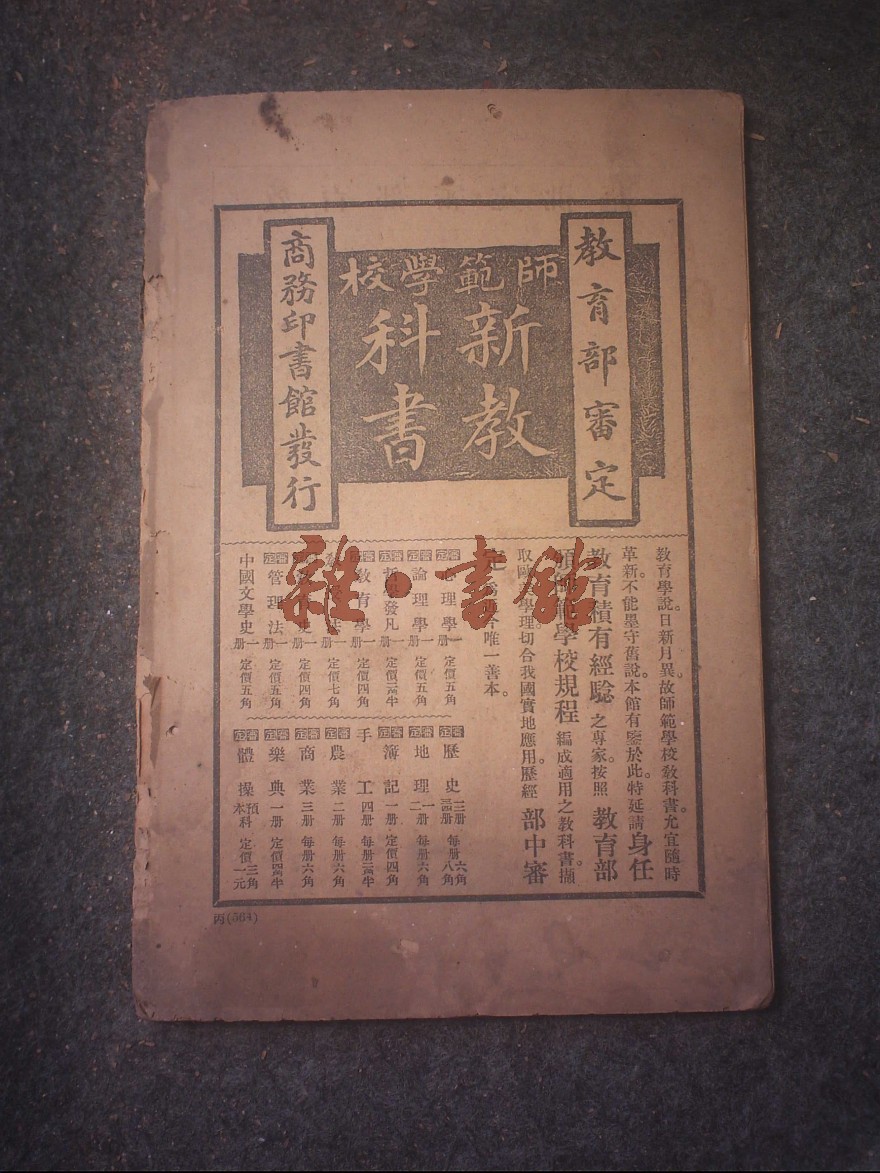 教育部審定
師範學校
新教
科書
商務印書館發行
教育學說。日新月異。故師範學校教科書。尤宜隨時
革新。不能墨守舊說。本館有鑒於此。特延請身任
教育積有經驗之專家。按照教育部
頒師範學校規程編成適用之教科書。擷
取歐學理切合我國實地應用。歷經部中審
定唯一善本。
審定 心理學 一册 定價五角
審定 論理學 一册 定價五角
審定 哲學發凡 一册 定價二角半
審定 教育學 一册 定價四角
一册 定價七角
史 一册 定價四角
審定 管理法 一册 定價五角
中國文學史 一册 定價五角
審定 歷史 一二册 三四册 每册六角 每册八角
審定 地理 一二册 每册六角
審定 簿記 一册 定價四角
手工 四册 每册二角半
審定 農業 二册 每册六角
審定 商業 三册 每册六角
審定 樂典 一册 定價四角半
審定 體操 預科 本科 定價三角 定價一元
丙(564)
雜·書館